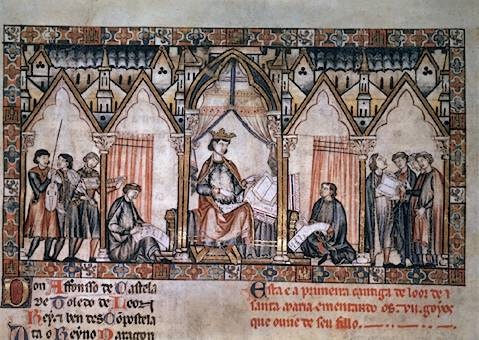 Don Affonsso de Castela
De Toledo de Leon
Rey e ben des Cõpostela
Ata o Reyno Daragon
Esta e a primeira cantiga de loor de
santa maria ementando os .vii. goyos
que ouve de seu fillo.